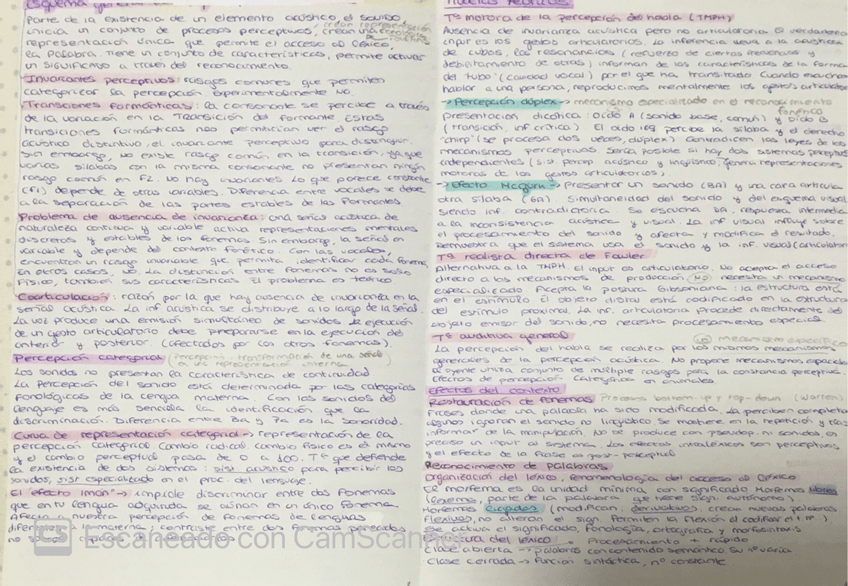 Esquema general
Parte de la existencia de un elemento acústico el sonido,
inicia un conjunto de procesos perceptivos, crean una
representación única que permite el acceso al léxico,
la palabra tiene un conjunto de características, permite activar
un significado a través del reconocimiento.
Invariantes perceptivos: rasgos comunes que permiten
categorizar la percepción. Experimentalmente no.
Transiciones formánticas: la consonante se percibe a través
de la variación en la transición del formante. Estas
transiciones formánticas nos permitirían ver el rasgo
acústico distintivo, el invariante perceptivo para distinguir.
Sin embargo, no existe rasgo común en la transición, ya que
varias sílabas con la misma consonante no presentan ningún
rasgo común en F2. No hay invariantes. Lo que parece constante
(F1) depende de otras variables. Diferencia entre vocales se debe
a la separación de las partes estables de los formantes.
Problema de ausencia de invarianza: una señal acústica de
naturaleza continua y variable activa representaciones mentales
discretas y estables de los fonemas. Sin embargo, la señal es
variable y depende del contexto fonético. Con las vocales
encuentran un rasgo invariable que permite identificar cada fonema.
En otros casos, no. La distinción entre fonemas no es sólo
física, también sus características. El problema es teórico
Coarticulación: razón por la que hay ausencia de invarianza en la
señal acústica. La inf acústica se distribuye a lo largo de la señal.
La voz produce una emisión simultáneo de sonidos. La ejecución
de un gesto articulatorio debe prepararse en la ejecución del
anterior y posterior (afectados por los otros fonemas).
Percepción categorial (Percep → transformación de una señal
en una representación interna)
Los sonidos no presentan la característica de continuidad
La percepción del sonido está determinada por las categorías
fonológicas de la lengua materna. Con los sonidos del
lenguaje es más sencilla la identificación que la
discriminación. Diferencia entre Ba y Pa es la sonoridad.
Curva de representación categorial → representación de la
percepción categorial. Cambio radical, cambio físico es el mismo
y el cambio perceptual pasa de 0 a 100. Tª que defiende
la existencia de dos sistemas: sist acústico para percibir los
sonidos, sist especializado en el proc. del lenguaje.
El efecto imán → impide discriminar entre dos fonemas
que en tu lengua adquirida se aúnan en un único fonema.
Afecta a nuestra percepción de fonemas de lenguas
Escaneado con CamScanner
Tª motora de la percepción del habla (TMPH)
Ausencia de invarianza acústica pero no articulatoria. El verdadero
input es los gestos articulatorios. La inferencia lleva a la acústica
de tubos, las resonancias (refuerzo de ciertas frecuencias y
debilitamiento de otras) informan de las características de la forma
del tubo (cavidad vocal) por el que ha transitado. Cuando escuchamos
hablar a una persona, reproducimos mentalmente los gestos articulatorios
→ Percepción dúplex → mecanismo especializado en el reconocimiento
fonético
presentación dicótica: Oído A (sonido base, común) y Oído B
(transición, inf crítica). El oído izq percibe la sílaba y el derecho
"chirp" (se procesa dos veces, dúplex). Contradicen las leyes de los
mecanismos perceptivos. Sería posible si hay dos sistemas perceptivos
independientes (sist. percep acústico y lingüístico, genera representaciones
motoras de los gestos articulatorios)
→ Efecto McGurk → Presentar un sonido (BA) y una cara articula
otra sílaba (GA). Simultaneidad del sonido y del esquema visual,
siendo inf. contradictoria. Se escucha DA, respuesta intermedia
a la inconsistencia acústica y visual. La inf visual influye sobre
el procesamiento del sonido y afecta y modifica el resultado.
Demuestra que el sistema usa el sonido y la inf. visual (articulatoria)
Tª realista directa de Fowler
Alternativa a la TMPH. El input es articulatorio. No acepta el acceso
directo a los mecanismos de producción. NO necesita un mecanismo
especializado. Acepta la postura Gibsoniana: la estructura está
en el estímulo. El objeto distal está codificado en la estructura
del estímulo proximal. La inf. articulatoria procede directamente del
objeto emisor del sonido, no necesita procesamiento específico
Tª auditiva general
NO mecanismo específico
La percepción del habla se realiza por los mismos mecanismos
generales de la percepción acústica. No propone mecanismos especializados
El oyente utiliza conjunto de múltiples rasgos para la constancia perceptiva.
Efectos de percepción categórica en animales.
Efectos del contexto
Restauración de fonemas Procesos bottom-up y top-down (Warren)
Frases donde una palabra ha sido modificada. La perciben completa
Reconocimiento de palabras
Organización del léxico, fenomenología del acceso al léxico
El morfema es la unidad mínima con significado. Morfemas libres
(lexema, parte de la palabra que tiene sign. autónomo)
Morfemas ligados (modifican, derivativos, crean nuevas palabras
Se activa el significado, fonología, ortografía y morfosintaxis
Estructura del léxico: Procesamiento + rápido
Clase abierta → palabras con contenido semántico. Su nº varía
Clase cerrada → función sintáctica, nº constante